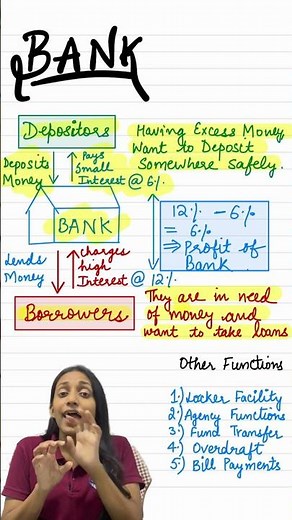 BANK
Depositors
Having Excess Money
Want to Deposit
Somewhere Safely.
Deposits
Money
Pays
Small
Interest @ 6%
BANK
12% - 6%
= 6%
⇒ Profit of
Bank
Lends
Money
charges
high
Interest @ 12%
Borrowers
They are in need
of money and
want to take loans
Other Functions
1.) Locker Facility
2.) Agency Functions
3.) Fund Transfer
4.) Overdraft
5.) Bill Payments